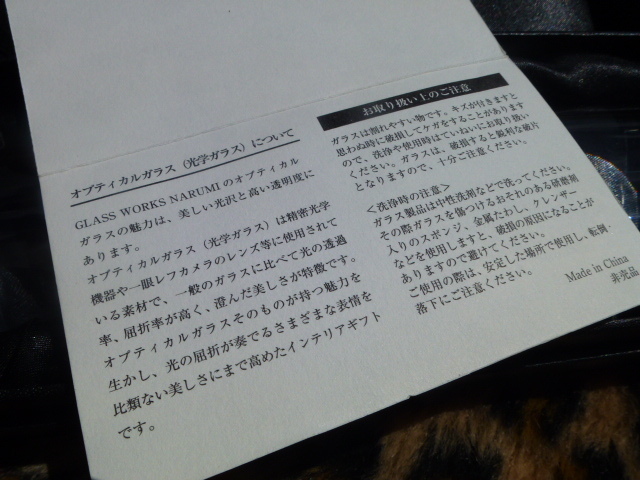 オプティカルガラス（光学ガラス）について
GLASS WORKS NARUMIのオプティカル
ガラスの魅力は、美しい光沢と高い透明度に
あります。
オプティカルガラス（光学ガラス）は精密光学
機器や一眼レフカメラのレンズ等に使用されて
いる素材で、一般のガラスに比べて光の透過
率、屈折率が高く、澄んだ美しさが特徴です。
オプティカルガラスそのものが持つ魅力を
生かし、光の屈折が奏でるさまざまな表情を
比類ない美しさにまで高めたインテリアギフト
です。
お取り扱い上のご注意
ガラスは割れやすい物です。キズが付きますと
思わぬ時に破損してケガをすることがあります
ので、洗浄や使用時はていねいにお取り扱い
ください。ガラスは、破損すると鋭利な破片
となりますので、十分ご注意ください。
＜洗浄時の注意＞
ガラス製品は中性洗剤などで洗ってください。
その際ガラスを傷つけるおそれのある研磨剤
入りのスポンジ、金属たわし、クレンザー
などを使用しますと、破損の原因になることが
ありますので避けてください。
ご使用の際は、安定した場所で使用し、転倒・
落下にご注意ください。
Made in China
非売品